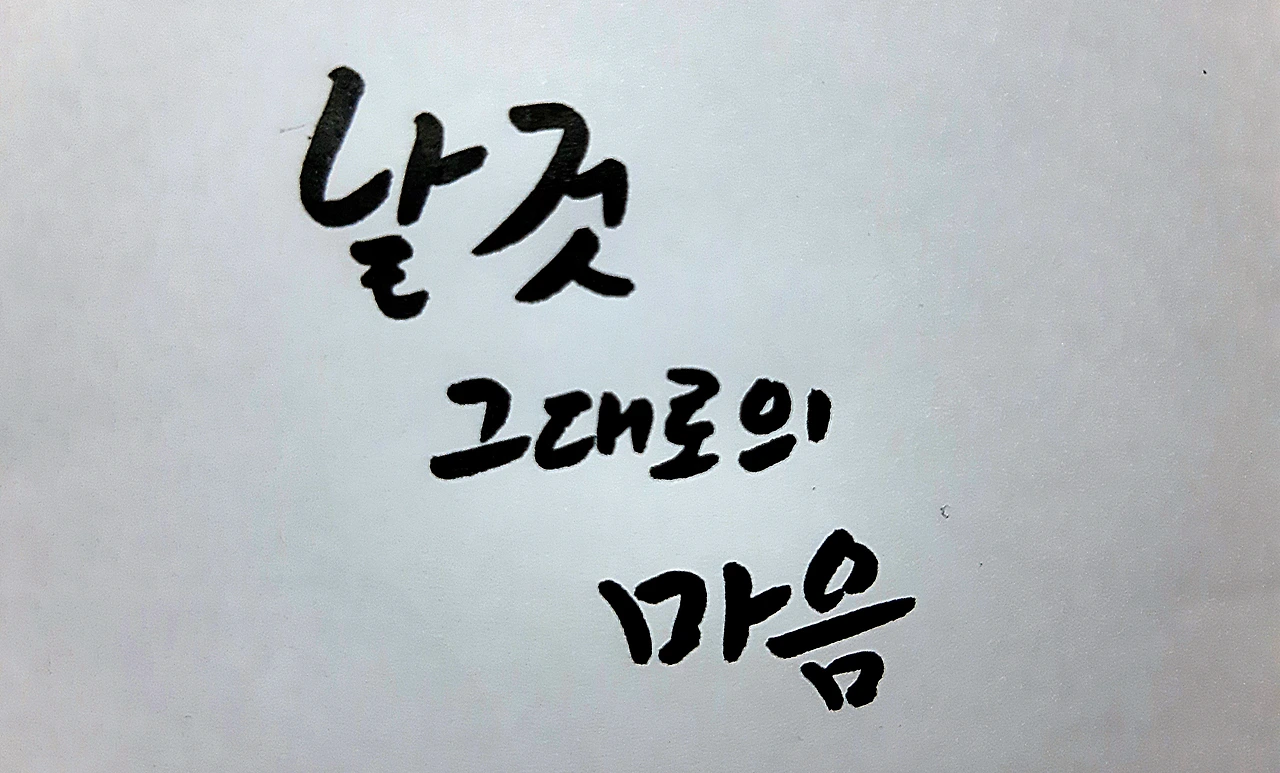 날것
그대로의
마음